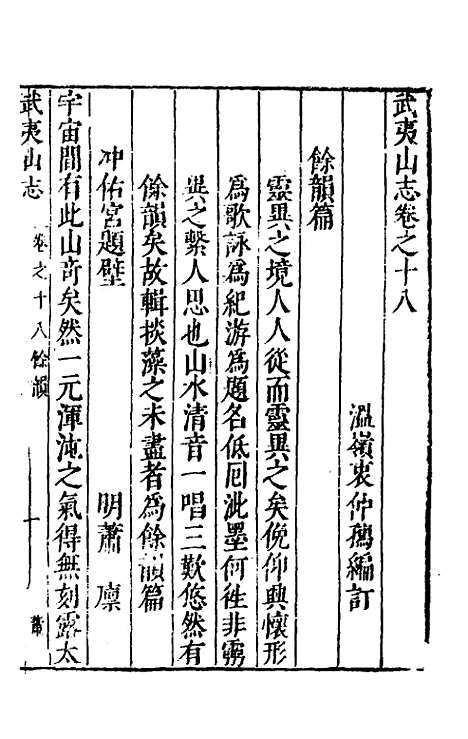 武夷山志卷之十八
溫嶺衷仲孺編訂
餘韻篇
靈異之境人人從而靈異之矣俛仰興懷形
爲歌詠爲紀游爲題名低囘泚墨何徃非霛
異之繫人思也山水清音一唱三歎悠然有
餘韻矣故輯掞藻之未盡者爲餘韻篇
冲佑宮題壁 明蕭 廩
宇宙間有此山奇矣然一元渾沌之氣得無刻露太
武夷山志 卷之十八餘韻 一